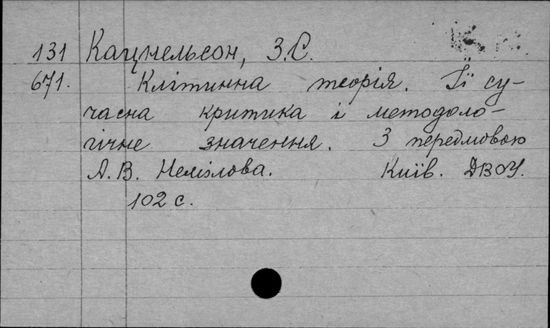 131 Кацнельсон, З.С.
671. Клітинна теорія. Її су-
часна критика і методоло-
гічне значення. З передмовою
А.В. Немілова. Київ. ДВОУ.
102 с.